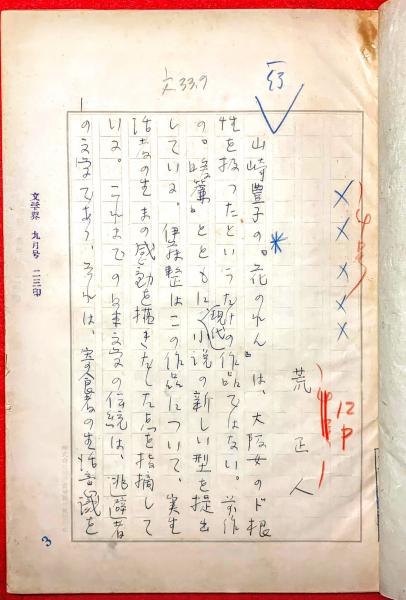 文33.9
荒 正人
山崎豊子の『花のれん』は、大阪女のド根
性を扱ったというだけの作品ではない。前作
の『暖簾』とともに現代小説の新しい型を提出
している。伊藤整はこの作品について、実生
活者の生まの感動を描きだした点を指摘して
いる。これまでの日本文学の伝統は、逃避者
の文学であり、それは、寄食者の生活意識を
文学界 九月号 二三印
12P
3